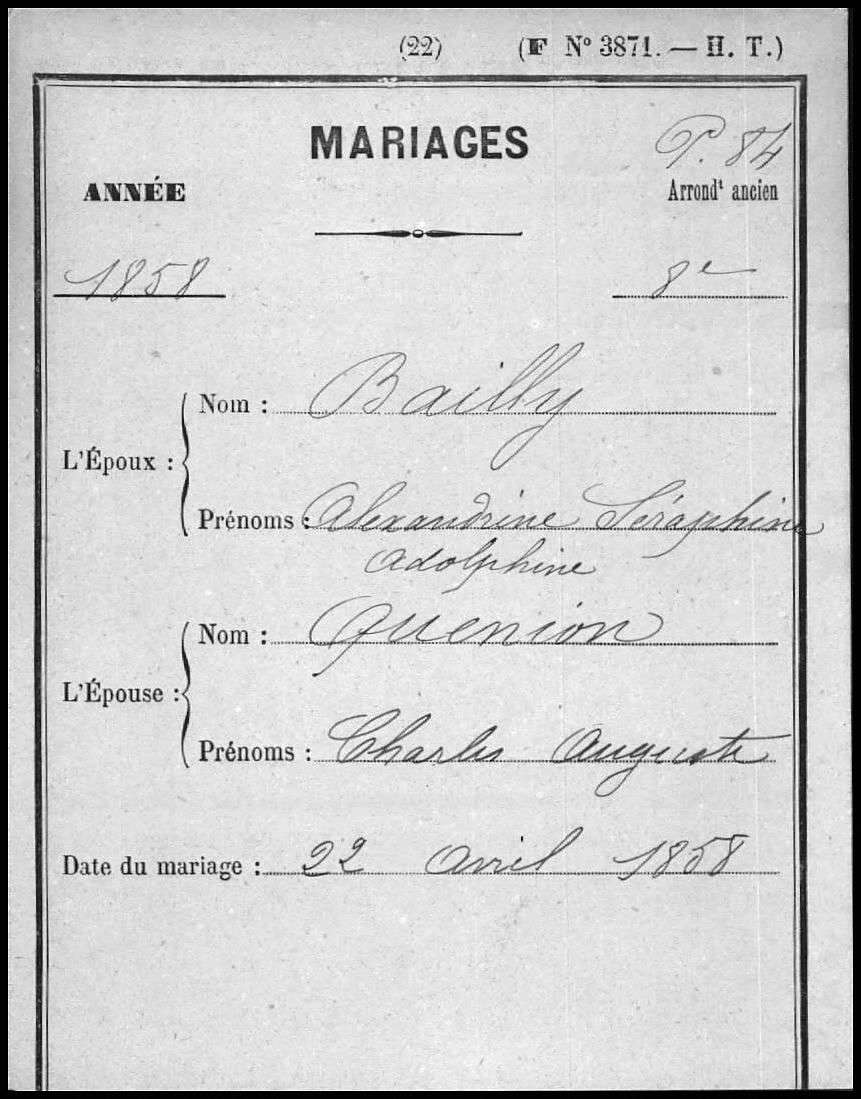 (22) (F Nº 3871. — H. T.)
MARIAGES
P. 84
ANNÉE
Arrondt ancien
1858
8e
L'Époux :
Nom : Bailly
Prénoms : Alexandrine Séraphine
Adolphine
L'Épouse :
Nom : Quenion
Prénoms : Charles Auguste
Date du mariage : 22 Avril 1858